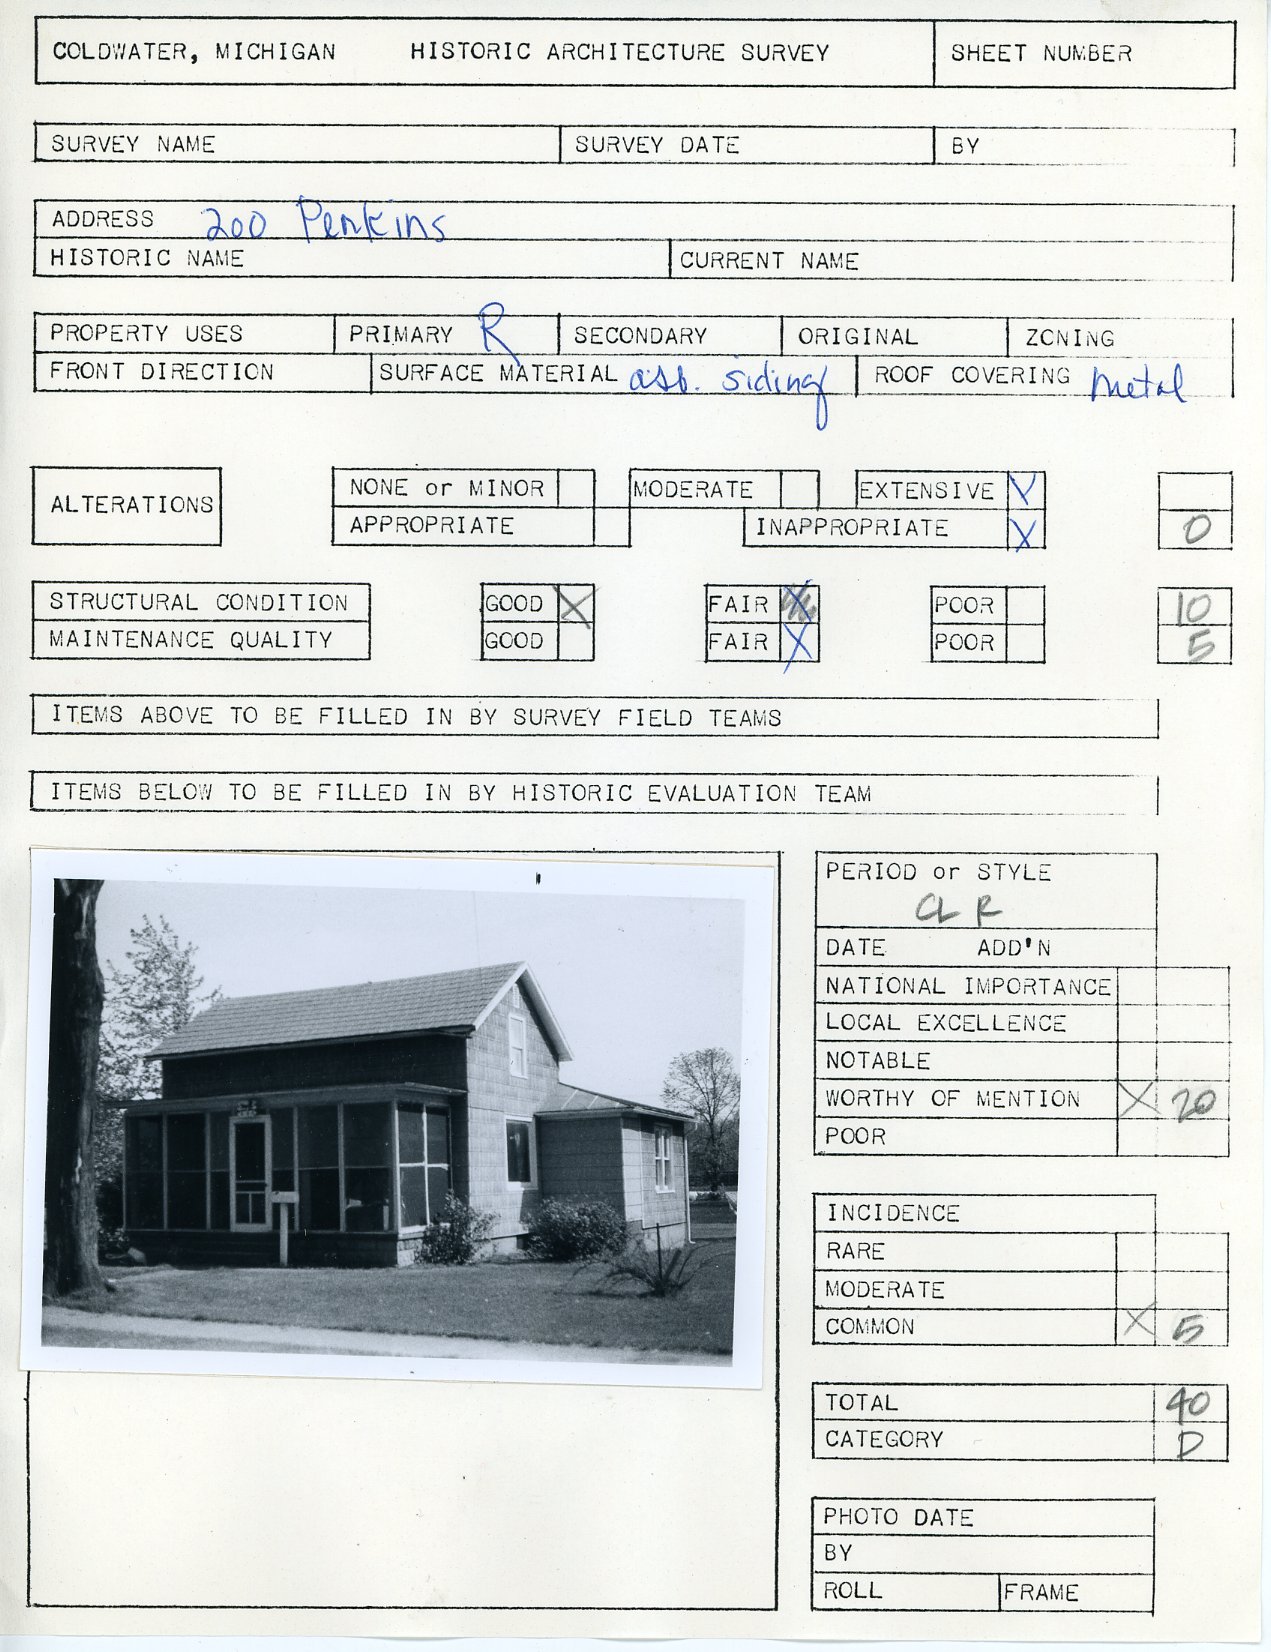 COLDWATER, MICHIGAN HISTORIC ARCHITECTURE SURVEY SHEET NUMBER
SURVEY NAME SURVEY DATE BY
ADDRESS 200 Perkins
HISTORIC NAME CURRENT NAME
PROPERTY USES PRIMARY R SECONDARY ORIGINAL ZONING
FRONT DIRECTION SURFACE MATERIAL asb. siding ROOF COVERING metal
ALTERATIONS
NONE or MINOR MODERATE EXTENSIVE X
APPROPRIATE INAPPROPRIATE X 0
STRUCTURAL CONDITION GOOD X FAIR X POOR 10
MAINTENANCE QUALITY GOOD FAIR X POOR 5
ITEMS ABOVE TO BE FILLED IN BY SURVEY FIELD TEAMS
ITEMS BELOW TO BE FILLED IN BY HISTORIC EVALUATION TEAM
PERIOD or STYLE
CL R
DATE ADD'N
NATIONAL IMPORTANCE
LOCAL EXCELLENCE
NOTABLE
WORTHY OF MENTION X 20
POOR
INCIDENCE
RARE
MODERATE
COMMON X 5
TOTAL 40
CATEGORY D
PHOTO DATE
BY
ROLL FRAME